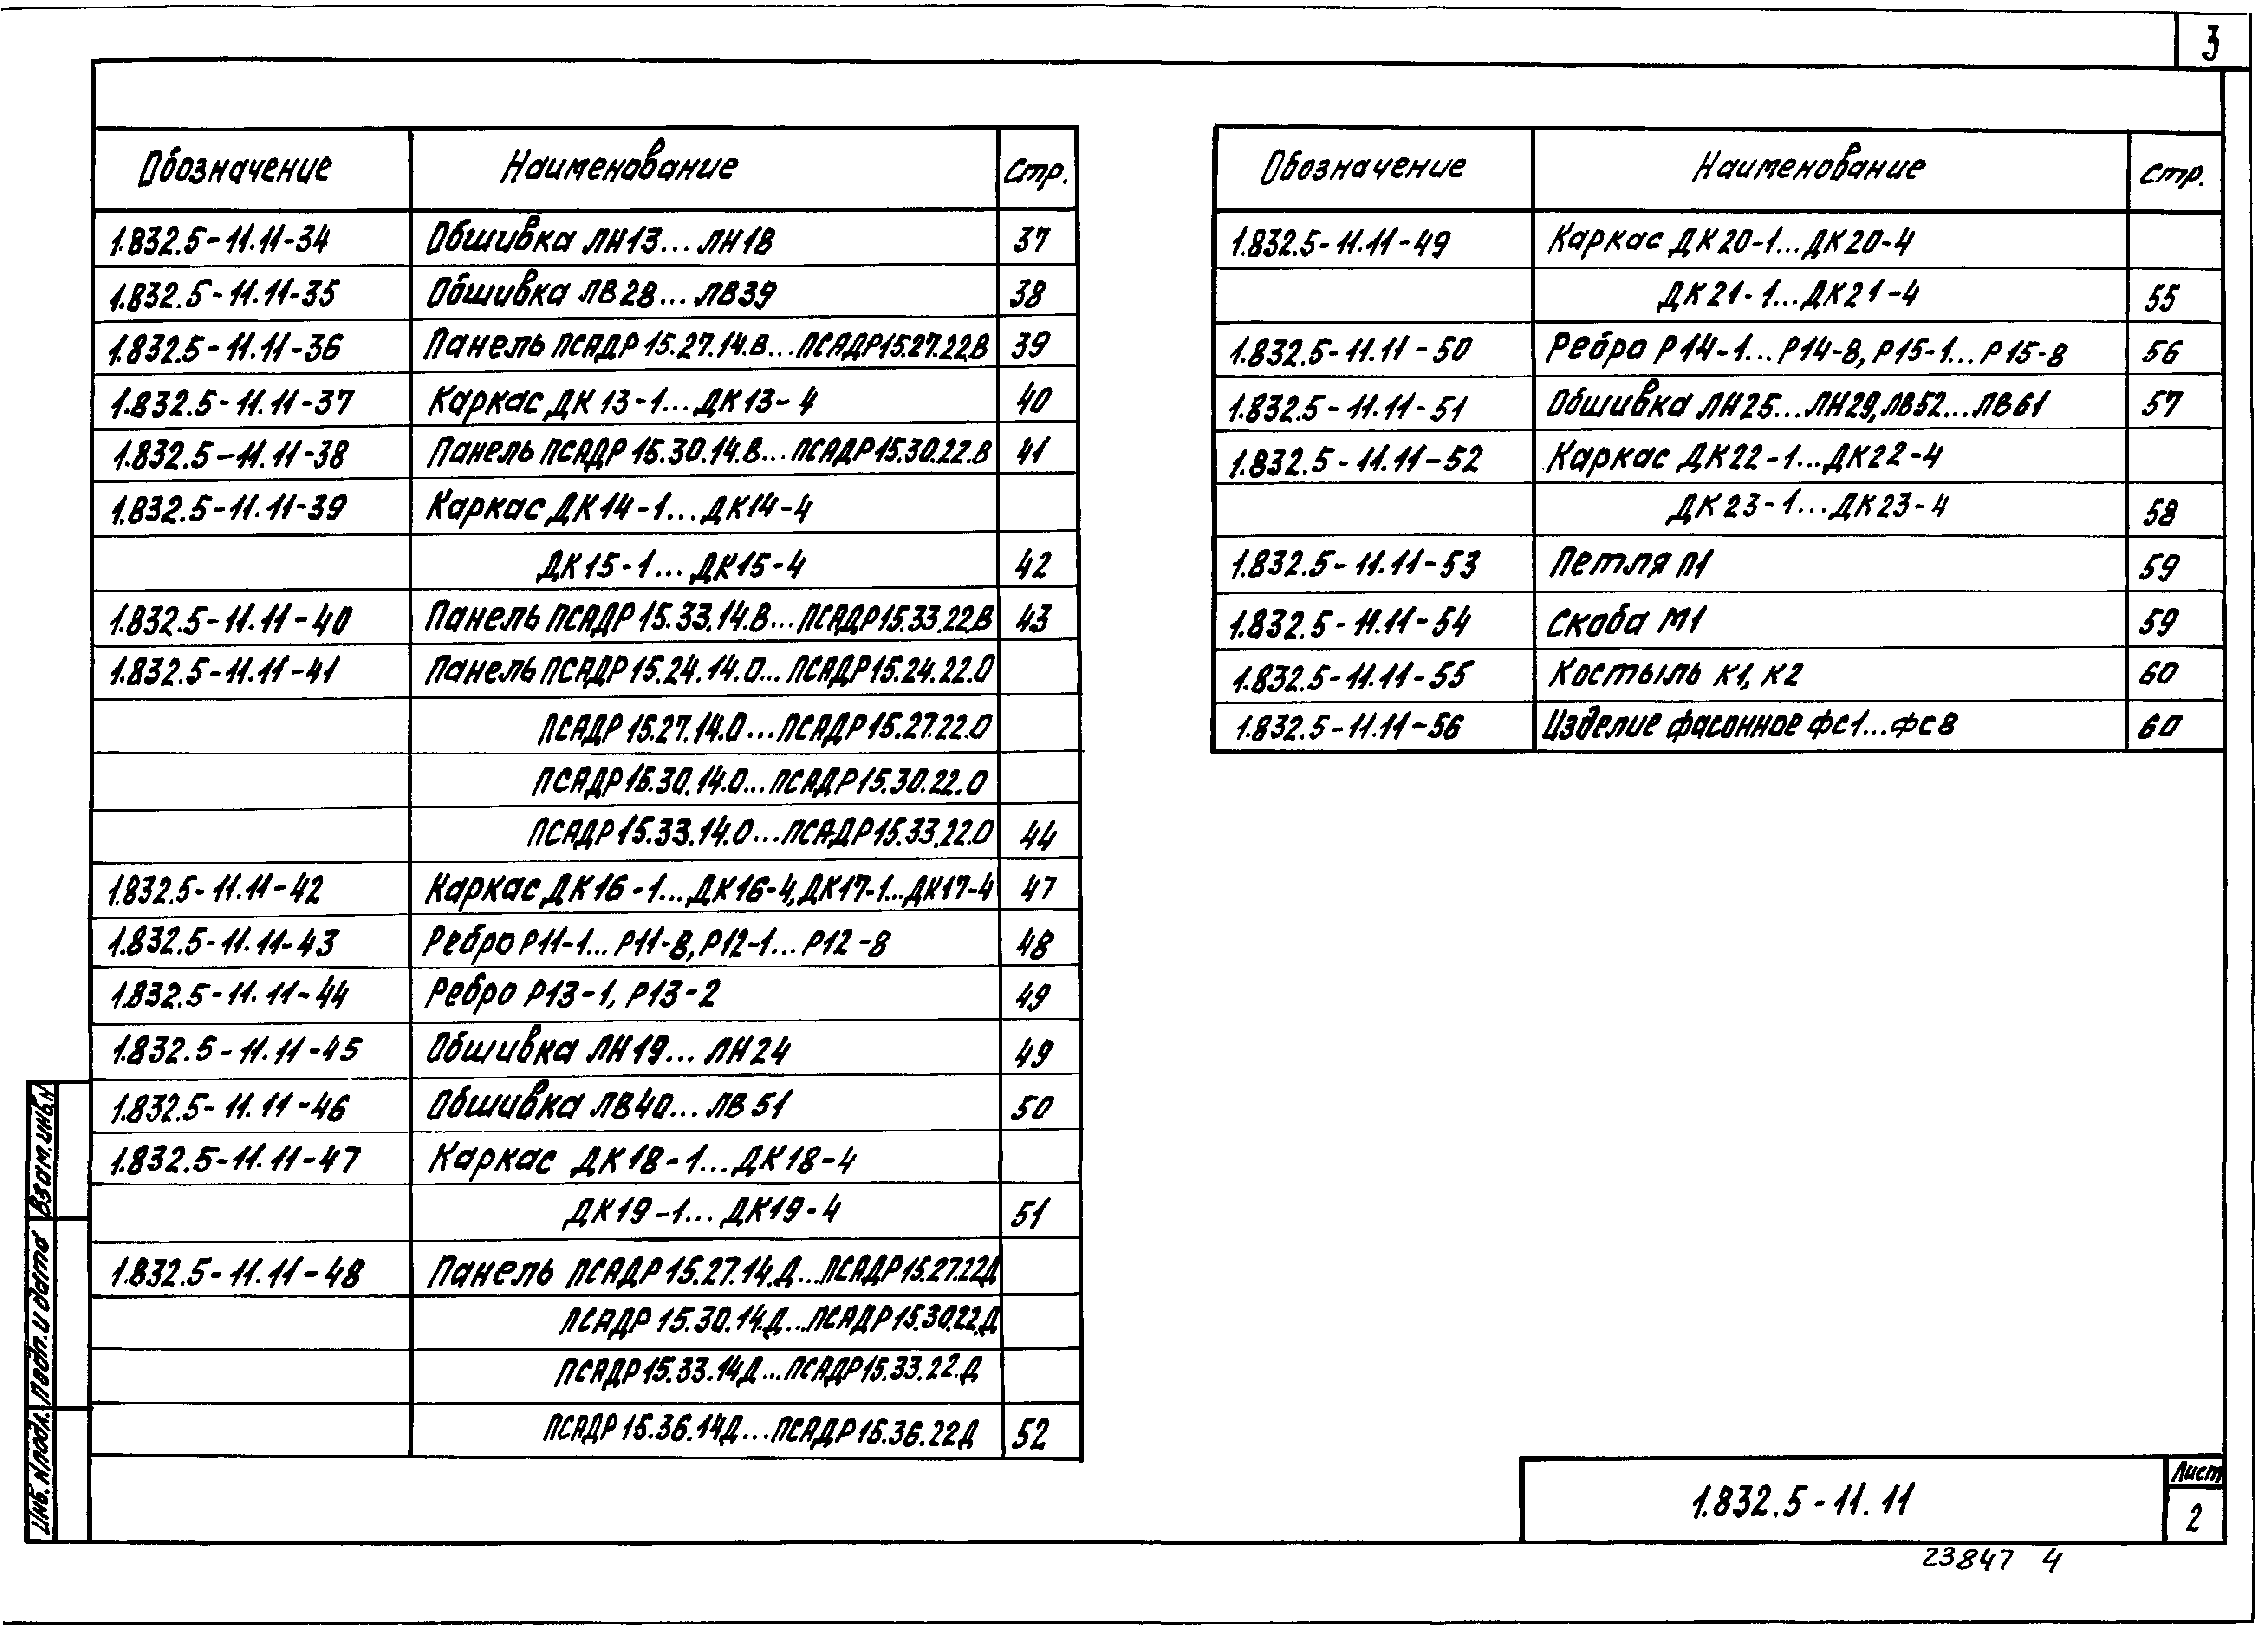 3
Обозначение Наименование Стр.
1.832.5-11.11-34 Обшивка ЛН13...ЛН18 37
1.832.5-11.11-35 Обшивка ЛВ28...ЛВ39 38
1.832.5-11.11-36 Панель ПСАДР15.27.14.В...ПСАДР15.27.22.В 39
1.832.5-11.11-37 Каркас ДК13-1...ДК13-4 40
1.832.5-11.11-38 Панель ПСАДР15.30.14.В...ПСАДР15.30.22.В 41
1.832.5-11.11-39 Каркас ДК14-1...ДК14-4
ДК15-1...ДК15-4 42
1.832.5-11.11-40 Панель ПСАДР15.33.14.В...ПСАДР15.33.22.В 43
1.832.5-11.11-41 Панель ПСАДР15.24.14.О...ПСАДР15.24.22.О
ПСАДР15.27.14.О...ПСАДР15.27.22.О
ПСАДР15.30.14.О...ПСАДР15.30.22.О
ПСАДР15.33.14.О...ПСАДР15.33.22.О 44
1.832.5-11.11-42 Каркас ДК16-1...ДК16-4, ДК17-1...ДК17-4 47
1.832.5-11.11-43 Ребро Р11-1...Р11-8, Р12-1...Р12-8 48
1.832.5-11.11-44 Ребро Р13-1, Р13-2 49
1.832.5-11.11-45 Обшивка ЛН19...ЛН24 49
1.832.5-11.11-46 Обшивка ЛВ40...ЛВ51 50
1.832.5-11.11-47 Каркас ДК18-1...ДК18-4
ДК19-1...ДК19-4 51
1.832.5-11.11-48 Панель ПСАДР15.27.14.Д...ПСАДР15.27.22Д
ПСАДР15.30.14.Д...ПСАДР15.30.22.Д
ПСАДР15.33.14Д...ПСАДР15.33.22.Д
ПСАДР15.36.14Д...ПСАДР15.36.22Д 52
Обозначение Наименование Стр.
1.832.5-11.11-49 Каркас ДК20-1...ДК20-4
ДК21-1...ДК21-4 55
1.832.5-11.11-50 Ребро Р14-1...Р14-8, Р15-1...Р15-8 56
1.832.5-11.11-51 Обшивка ЛН25...ЛН29, ЛВ52...ЛВ61 57
1.832.5-11.11-52 Каркас ДК22-1...ДК22-4
ДК23-1...ДК23-4 58
1.832.5-11.11-53 Петля П1 59
1.832.5-11.11-54 Скоба М1 59
1.832.5-11.11-55 Костыль К1, К2 60
1.832.5-11.11-56 Изделие фасонное ФС1...ФС8 60
Взам.инв.N
Подп.и дата
Инв.Nподл.
1.832.5-11.11
Лист
2
23847 4